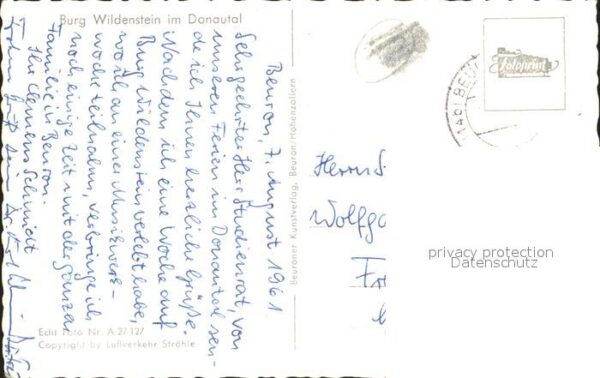 Burg Wildenstein im Donautal
Beuron, 7. August 1961
Sehr geehrter Herr Studienrat, von
unseren Ferien im Donautal sen-
de ich Ihnen herzliche Grüße.
Nachdem ich eine Woche auf
Burg Wildenstein verlebt habe,
wo ich an einer Musizier-
woche teilnahm, verbringe ich
noch einige Zeit mit der ganzen
Familie in Beuron.
Ihr Clemens Schmidt
Echt Foto Nr. A 27127
Copyright by Luftverkehr Strähle
Beuroner Kunstverlag, Beuron/Hohenzollern
(14b) BEU
Fotoprint
Herrn S
Wolfga
Fr
privacy protection
Datenschutz